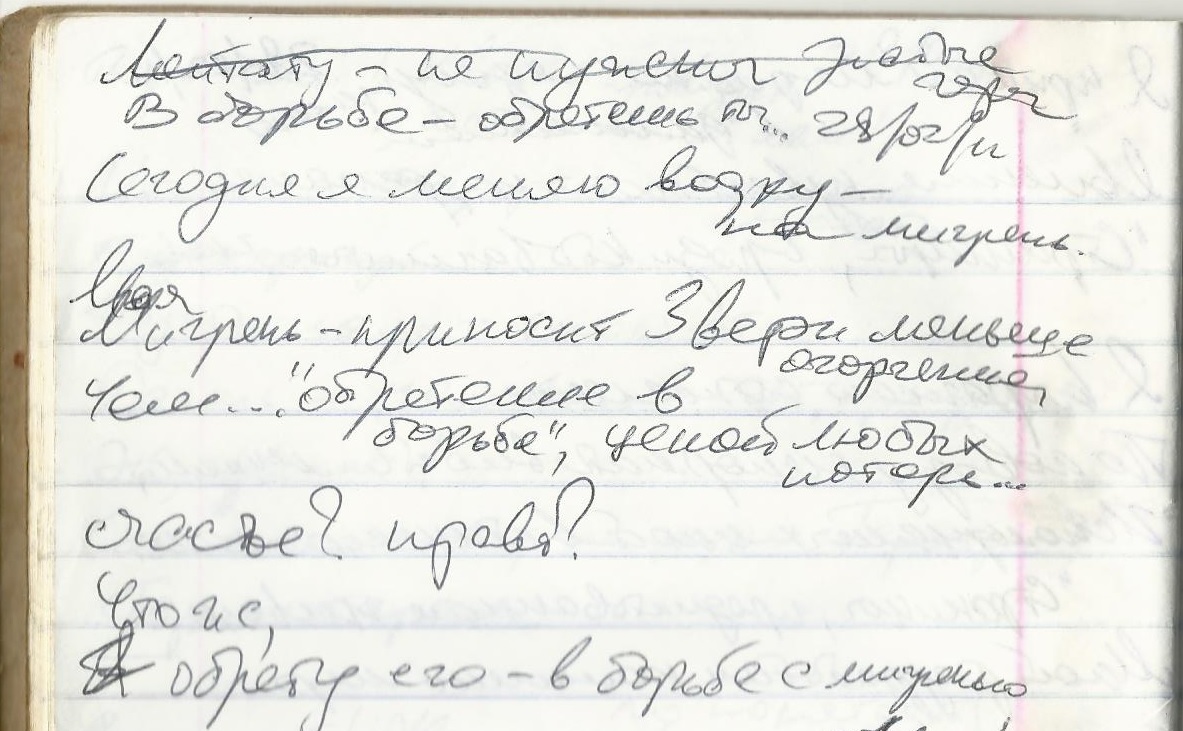 не нужены
В борьбе – обретешь ты...
Сегодня я меняю водку –
на мигрень.
Мигрень – приносит Звери меньше
огорчение,
Чем... "обретение в
борьбе", ценой любых
потерь...
счастье? права?
Что ж,
Я обрету его – в борьбе с мигренью